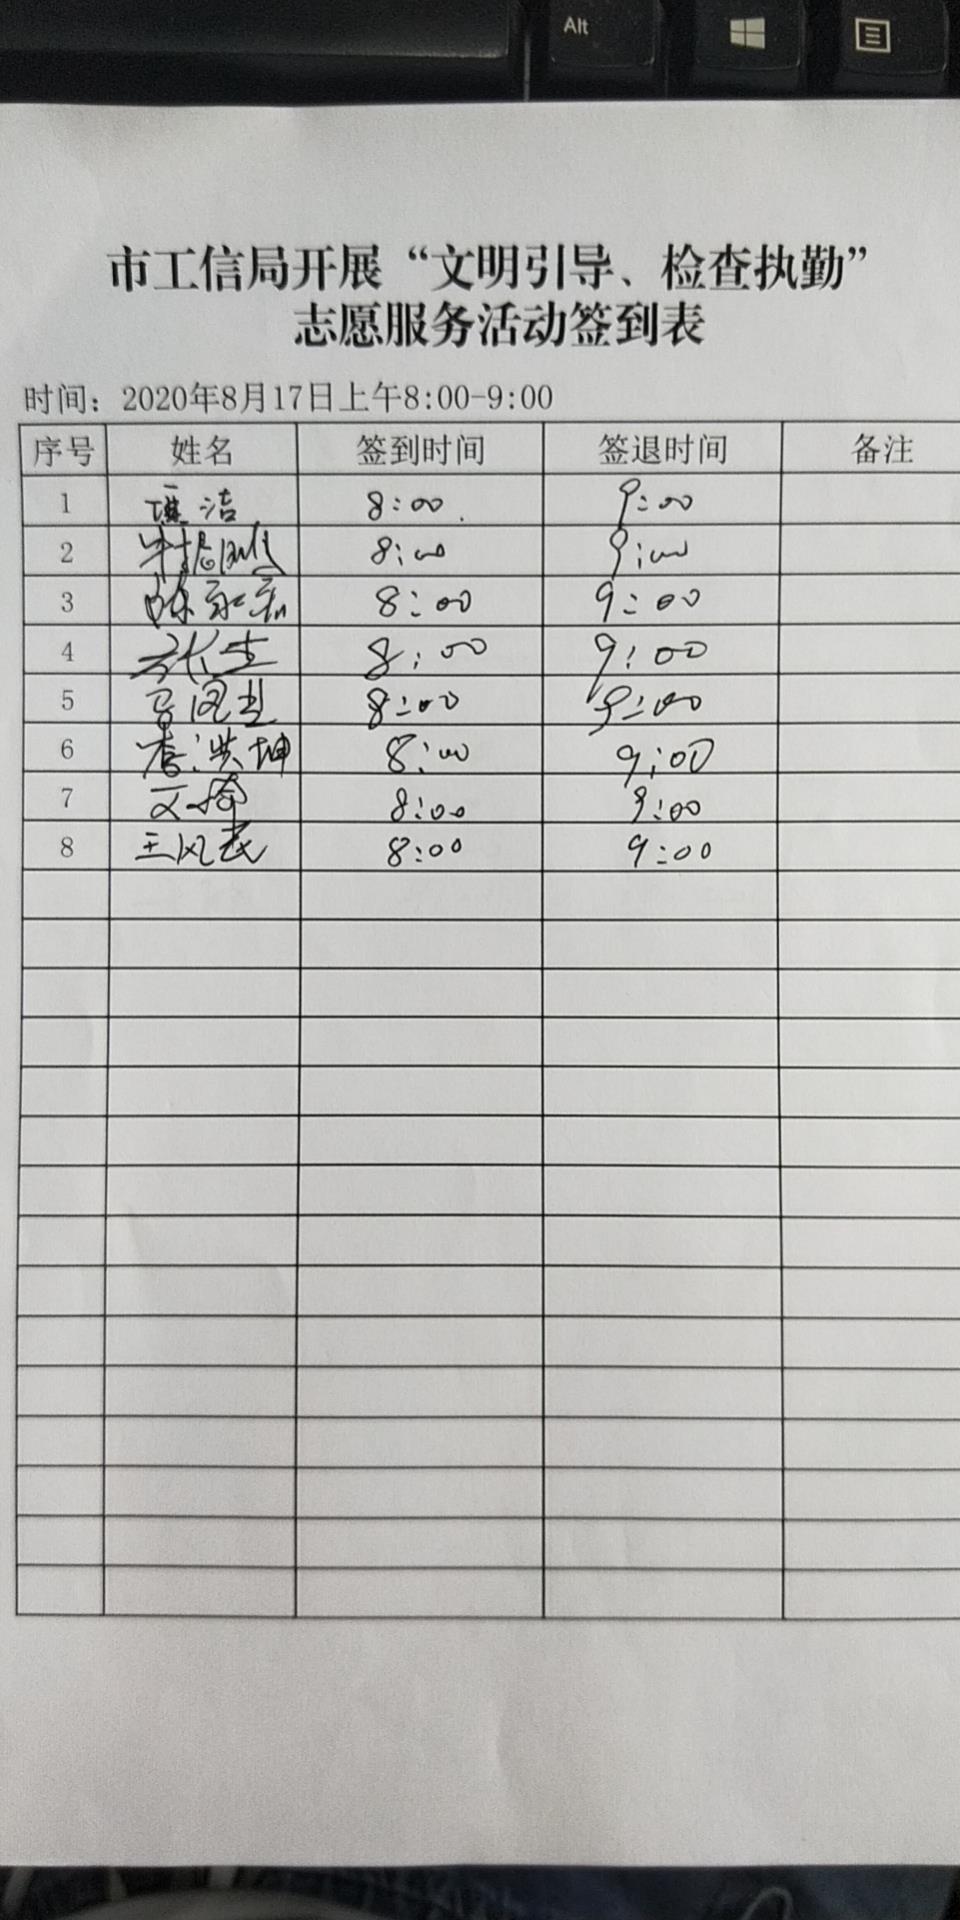 Alt
市工信局开展“文明引导、检查执勤”
志愿服务活动签到表
时间：2020年8月17日上午8:00-9:00
序号 姓名 签到时间 签退时间 备注
1 洁 8:00 9:00
2 8:00 9:00
3 陈永宏 8:00 9:00
4 张 8:00 9:00
5 8:00 9:00
6 李洪坤 8:00 9:00
7 8:00 9:00
8 王风武 8:00 9:00